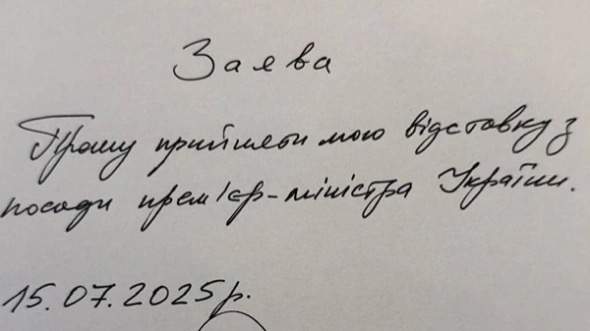 Заява
Прошу прийняти мою відставку з
посади прем'єр-міністра України.
15.07.2025р.